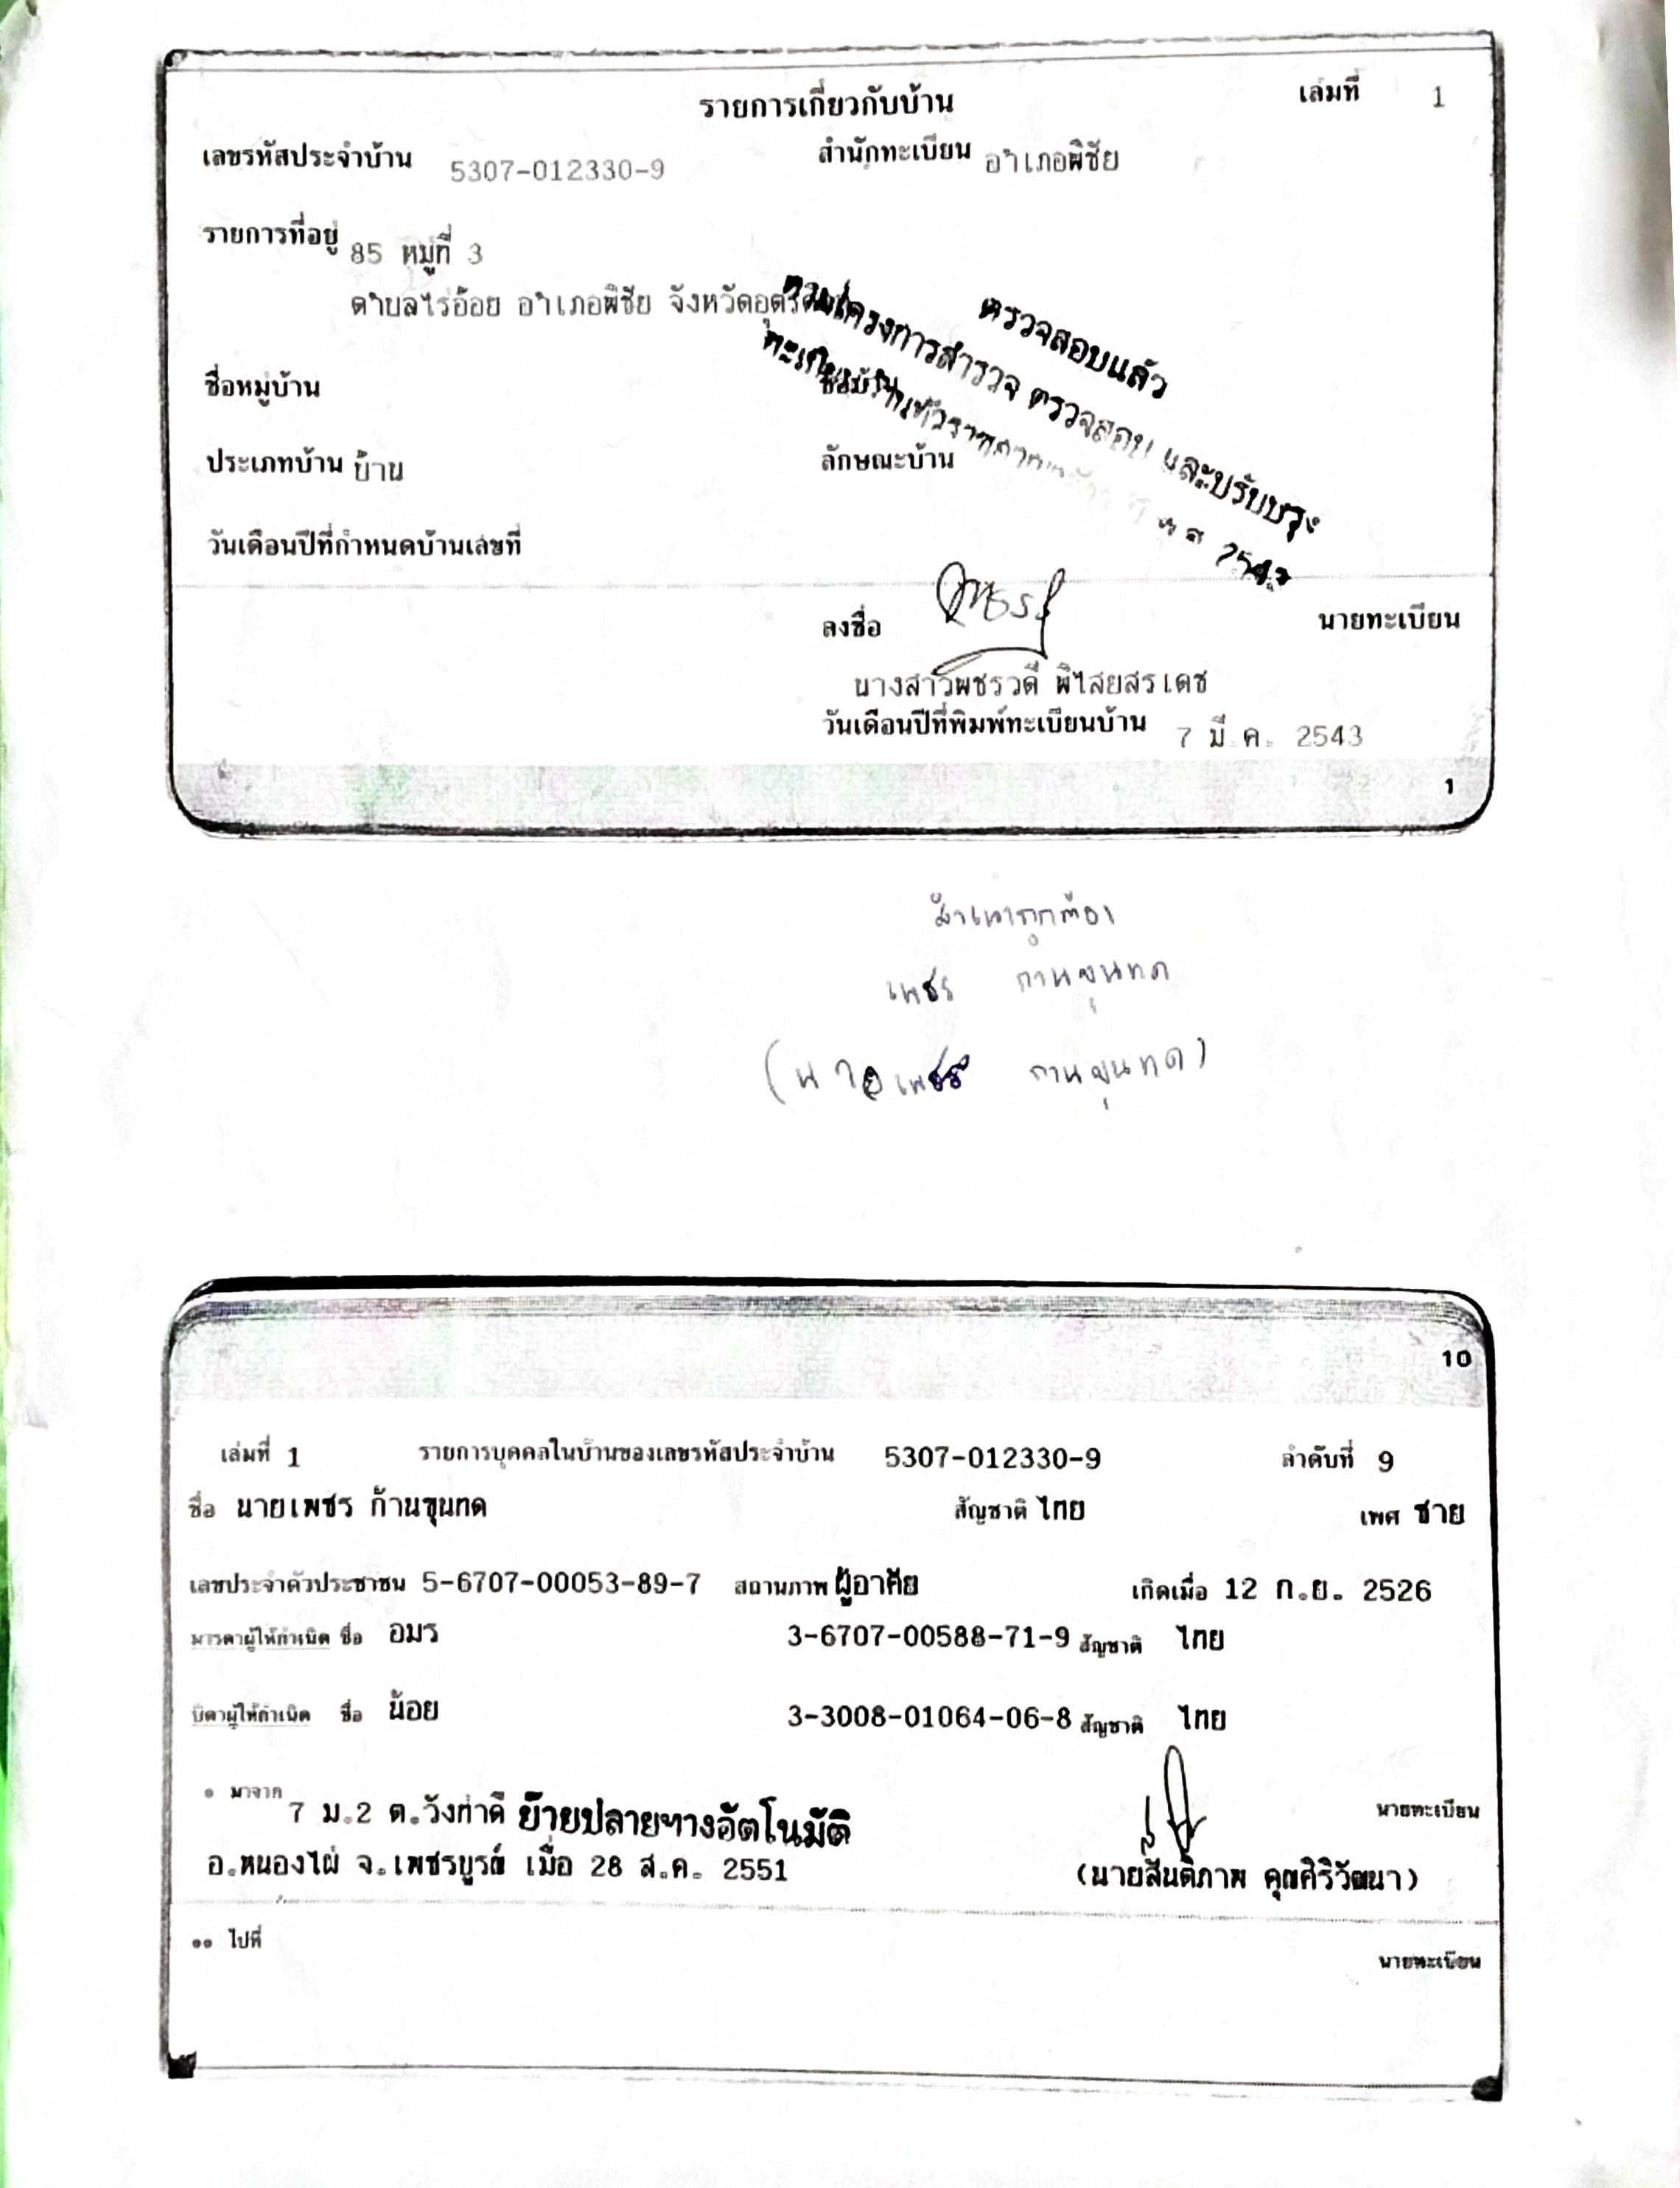 รายการเกี่ยวกับบ้าน เล่มที่ 1
เลขรหัสประจำบ้าน 5307-012330-9 สำนักทะเบียน อำเภอพิชัย
รายการที่อยู่ 85 หมู่ที่ 3
ตำบลไร่อ้อย อำเภอพิชัย จังหวัดอุตรดิตถ์
ตรวจสอบแล้ว
ตามโครงการสำรวจ ตรวจสอบ และปรับปรุง
ทะเบียนบ้านทั่วราชอาณาจักร ปี พ.ศ. 2542
ชื่อหมู่บ้าน ชื่อบ้าน
ประเภทบ้าน บ้าน ลักษณะบ้าน
วันเดือนปีที่กำหนดบ้านเลขที่
ลงชื่อ นายทะเบียน
นางสาวพชรวดี พิไสยสรเดช
วันเดือนปีที่พิมพ์ทะเบียนบ้าน 7 มี.ค. 2543
1
สำเนาถูกต้อง
เพชร ก้านขุนทด
(นายเพชร ก้านขุนทด)
10
เล่มที่ 1 รายการบุคคลในบ้านของเลขรหัสประจำบ้าน 5307-012330-9 ลำดับที่ 9
ชื่อ นายเพชร ก้านขุนทด สัญชาติ ไทย เพศ ชาย
เลขประจำตัวประชาชน 5-6707-00053-89-7 สถานภาพ ผู้อาศัย เกิดเมื่อ 12 ก.ย. 2526
มารดาผู้ให้กำเนิด ชื่อ อมร 3-6707-00588-71-9 สัญชาติ ไทย
บิดาผู้ให้กำเนิด ชื่อ น้อย 3-3008-01064-06-8 สัญชาติ ไทย
* มาจาก 7 ม.2 ต.วังท่าดี ย้ายปลายทางอัตโนมัติ นายทะเบียน
อ.หนองไผ่ จ.เพชรบูรณ์ เมื่อ 28 ส.ค. 2551 (นายสันติภาพ คุณศิริวัฒนา)
** ไปที่
นายทะเบียน